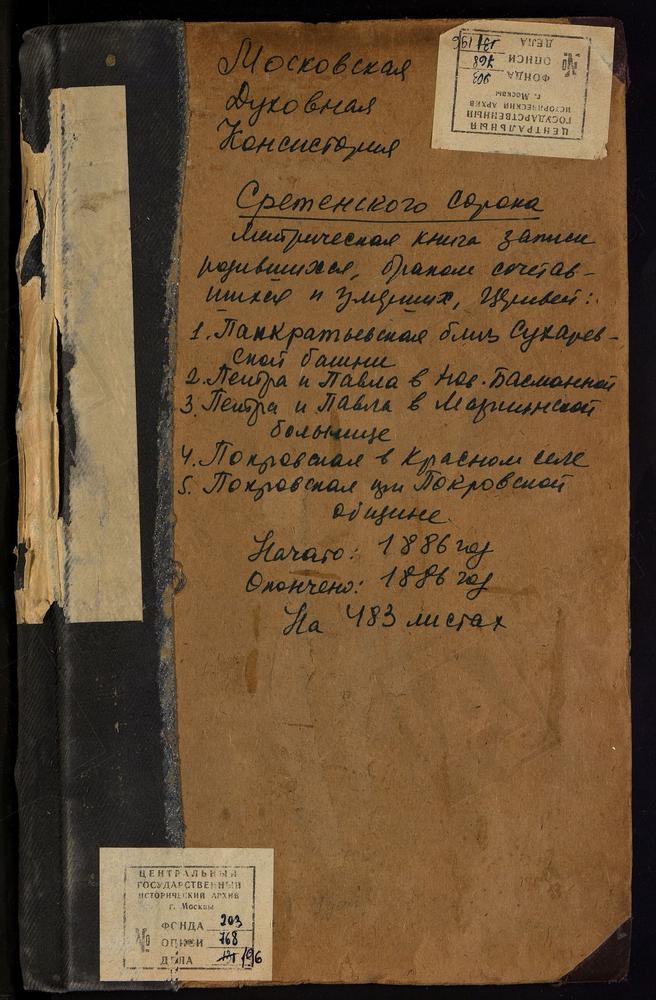 Московская
Духовная
Консистория
Сретенского сорока
Метрическая книга записи
родившихся, браком сочетав-
шихся и умерших, церквей:
1. Панкратьевская близ Сухарев-
ской башни
2. Петра и Павла в Нов. Басманной
3. Петра и Павла в Мариинской
больнице
4. Покровская в Красном селе
5. Покровская при Покровской
общине.
Начато: 1886 год
Окончено: 1886 год
На 483 листах
ЦЕНТРАЛЬНЫЙ
ГОСУДАРСТВЕННЫЙ
ИСТОРИЧЕСКИЙ АРХИВ
г. Москвы
№
ФОНДА 203
ОПИСИ 768
ДЕЛА 196
ЦЕНТРАЛЬНЫЙ
ГОСУДАРСТВЕННЫЙ
ИСТОРИЧЕСКИЙ АРХИВ
г. Москвы
№
ФОНДА 203
ОПИСИ 768
ДЕЛА 196